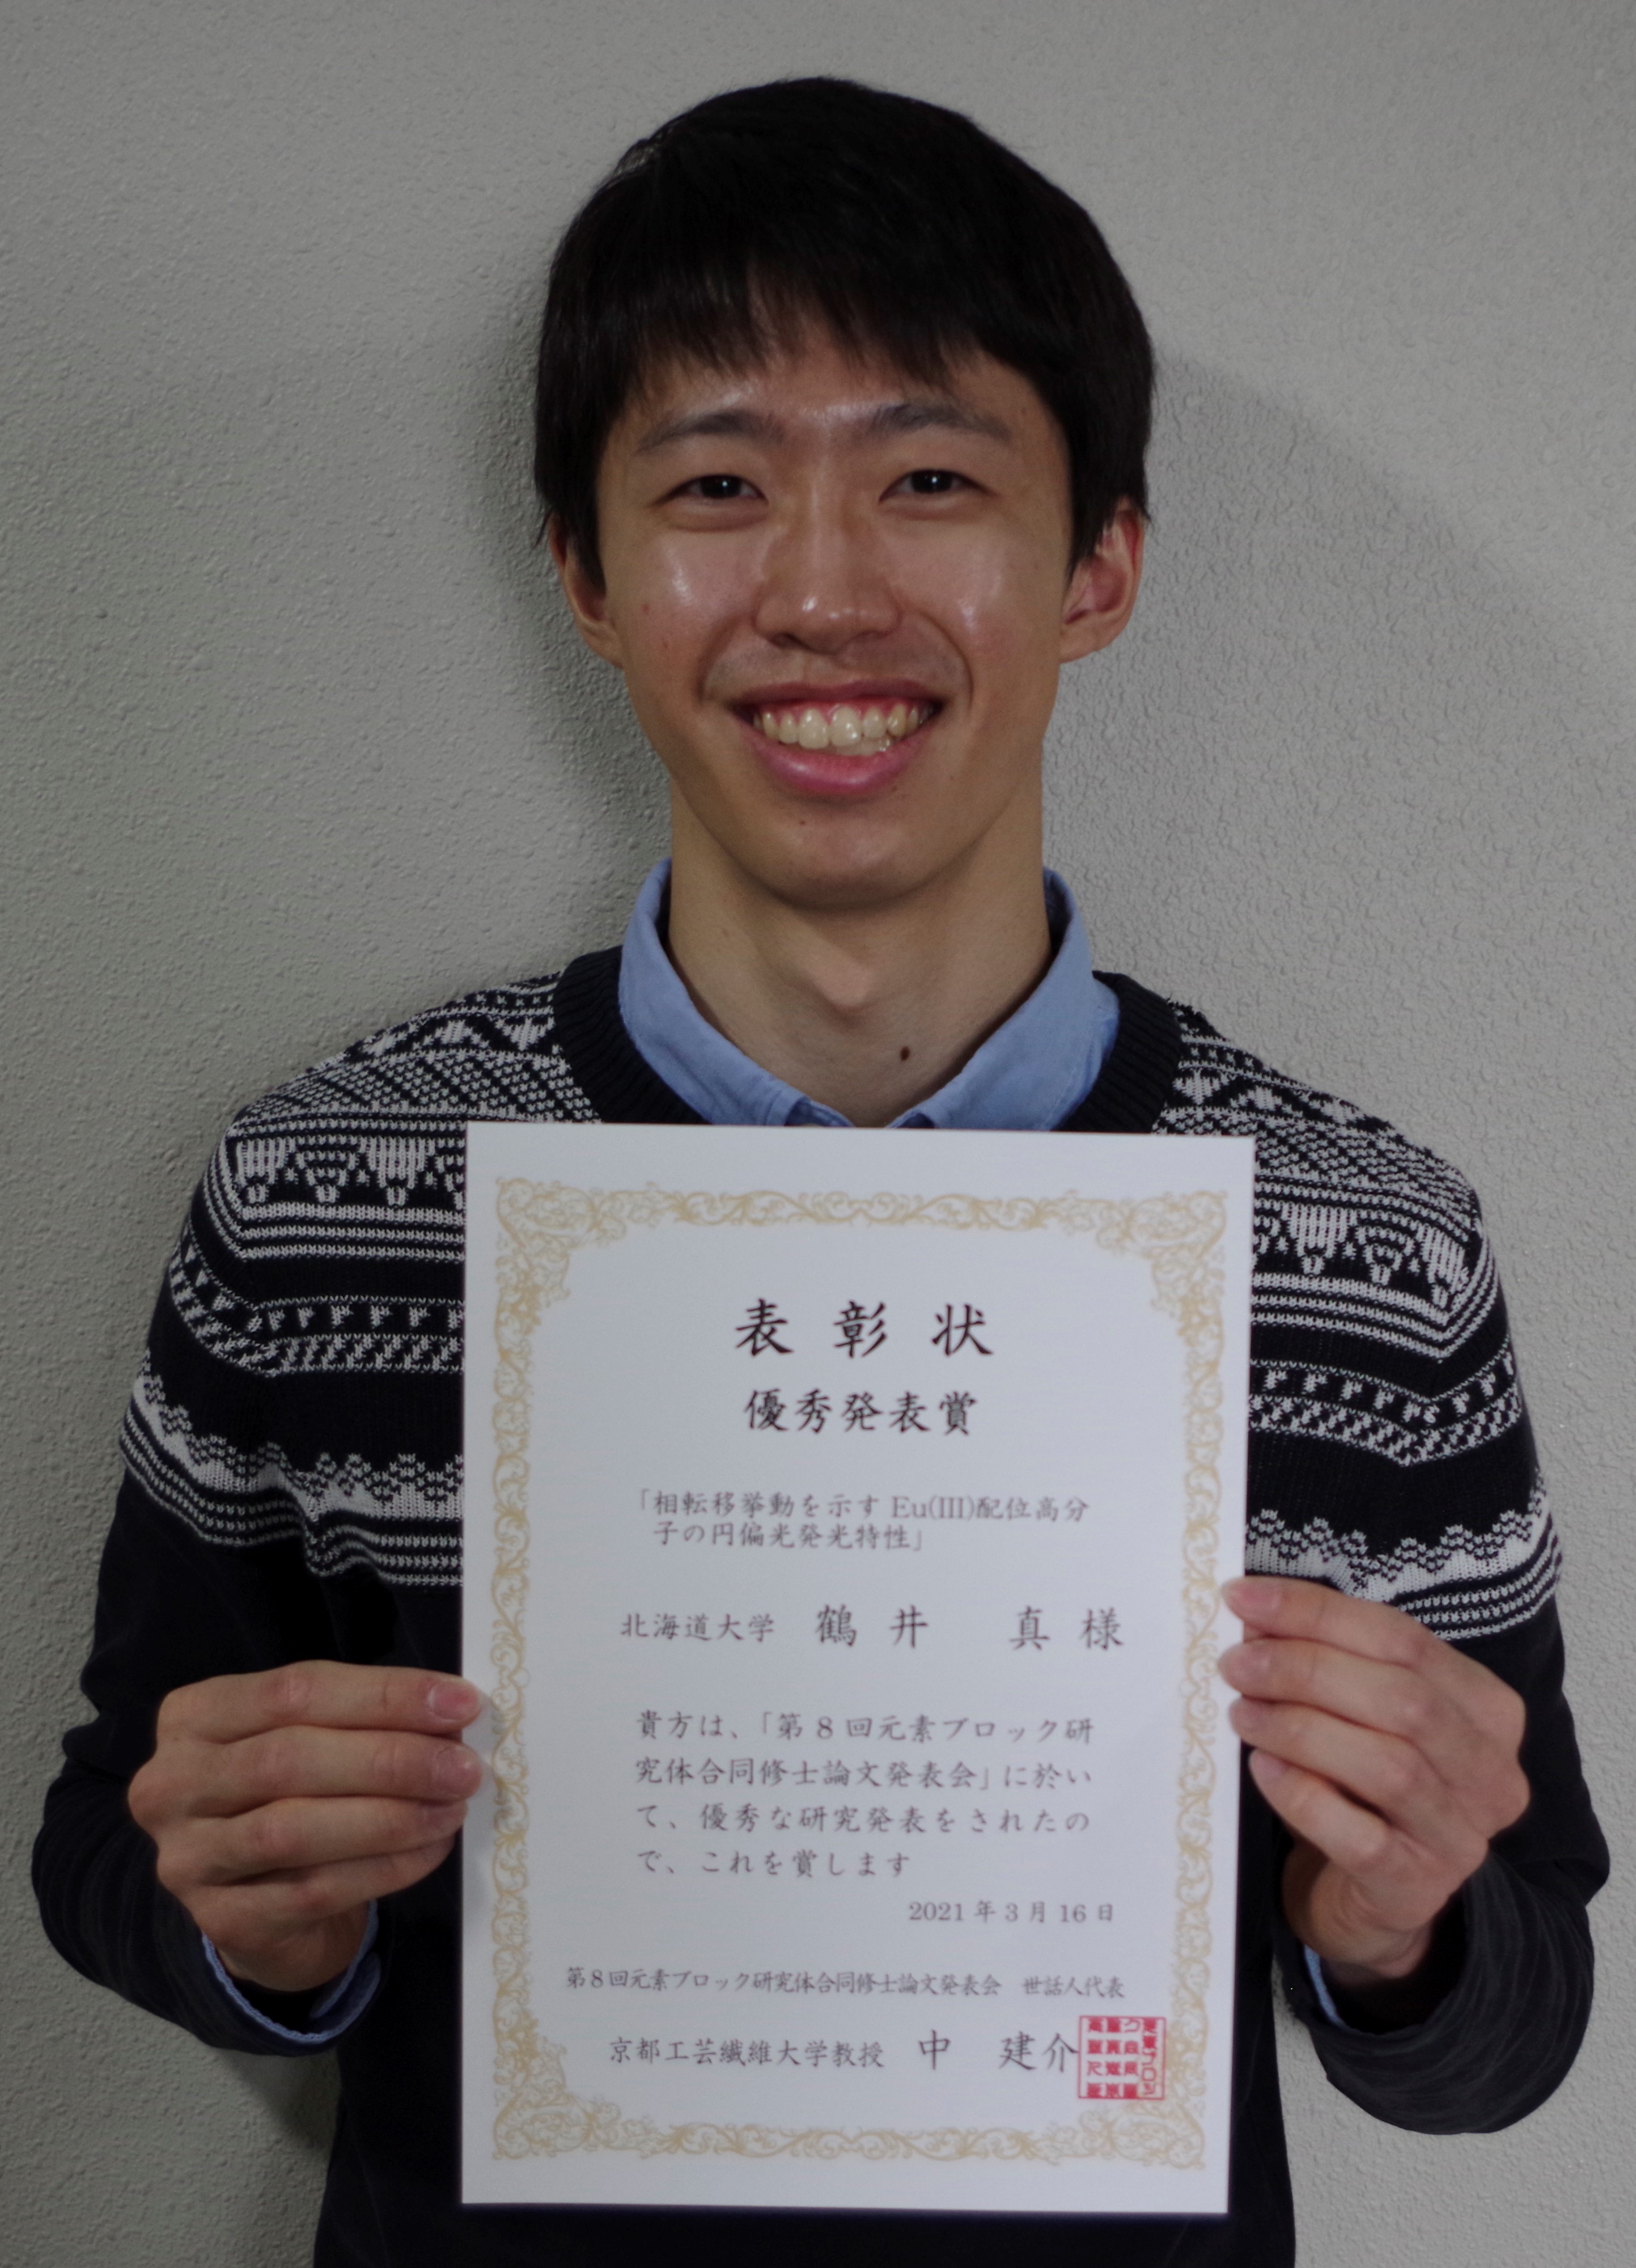 表彰状
優秀発表賞
「相転移挙動を示す Eu(III)配位高分
子の円偏光発光特性」
北海道大学 鶴井 真 様
貴方は、「第 8 回元素ブロック研
究体合同修士論文発表会」に於い
て、優秀な研究発表をされたの
で、これを賞します
2021 年 3 月 16 日
第8回元素ブロック研究体合同修士論文発表会 世話人代表
京都工芸繊維大学教授 中 建介